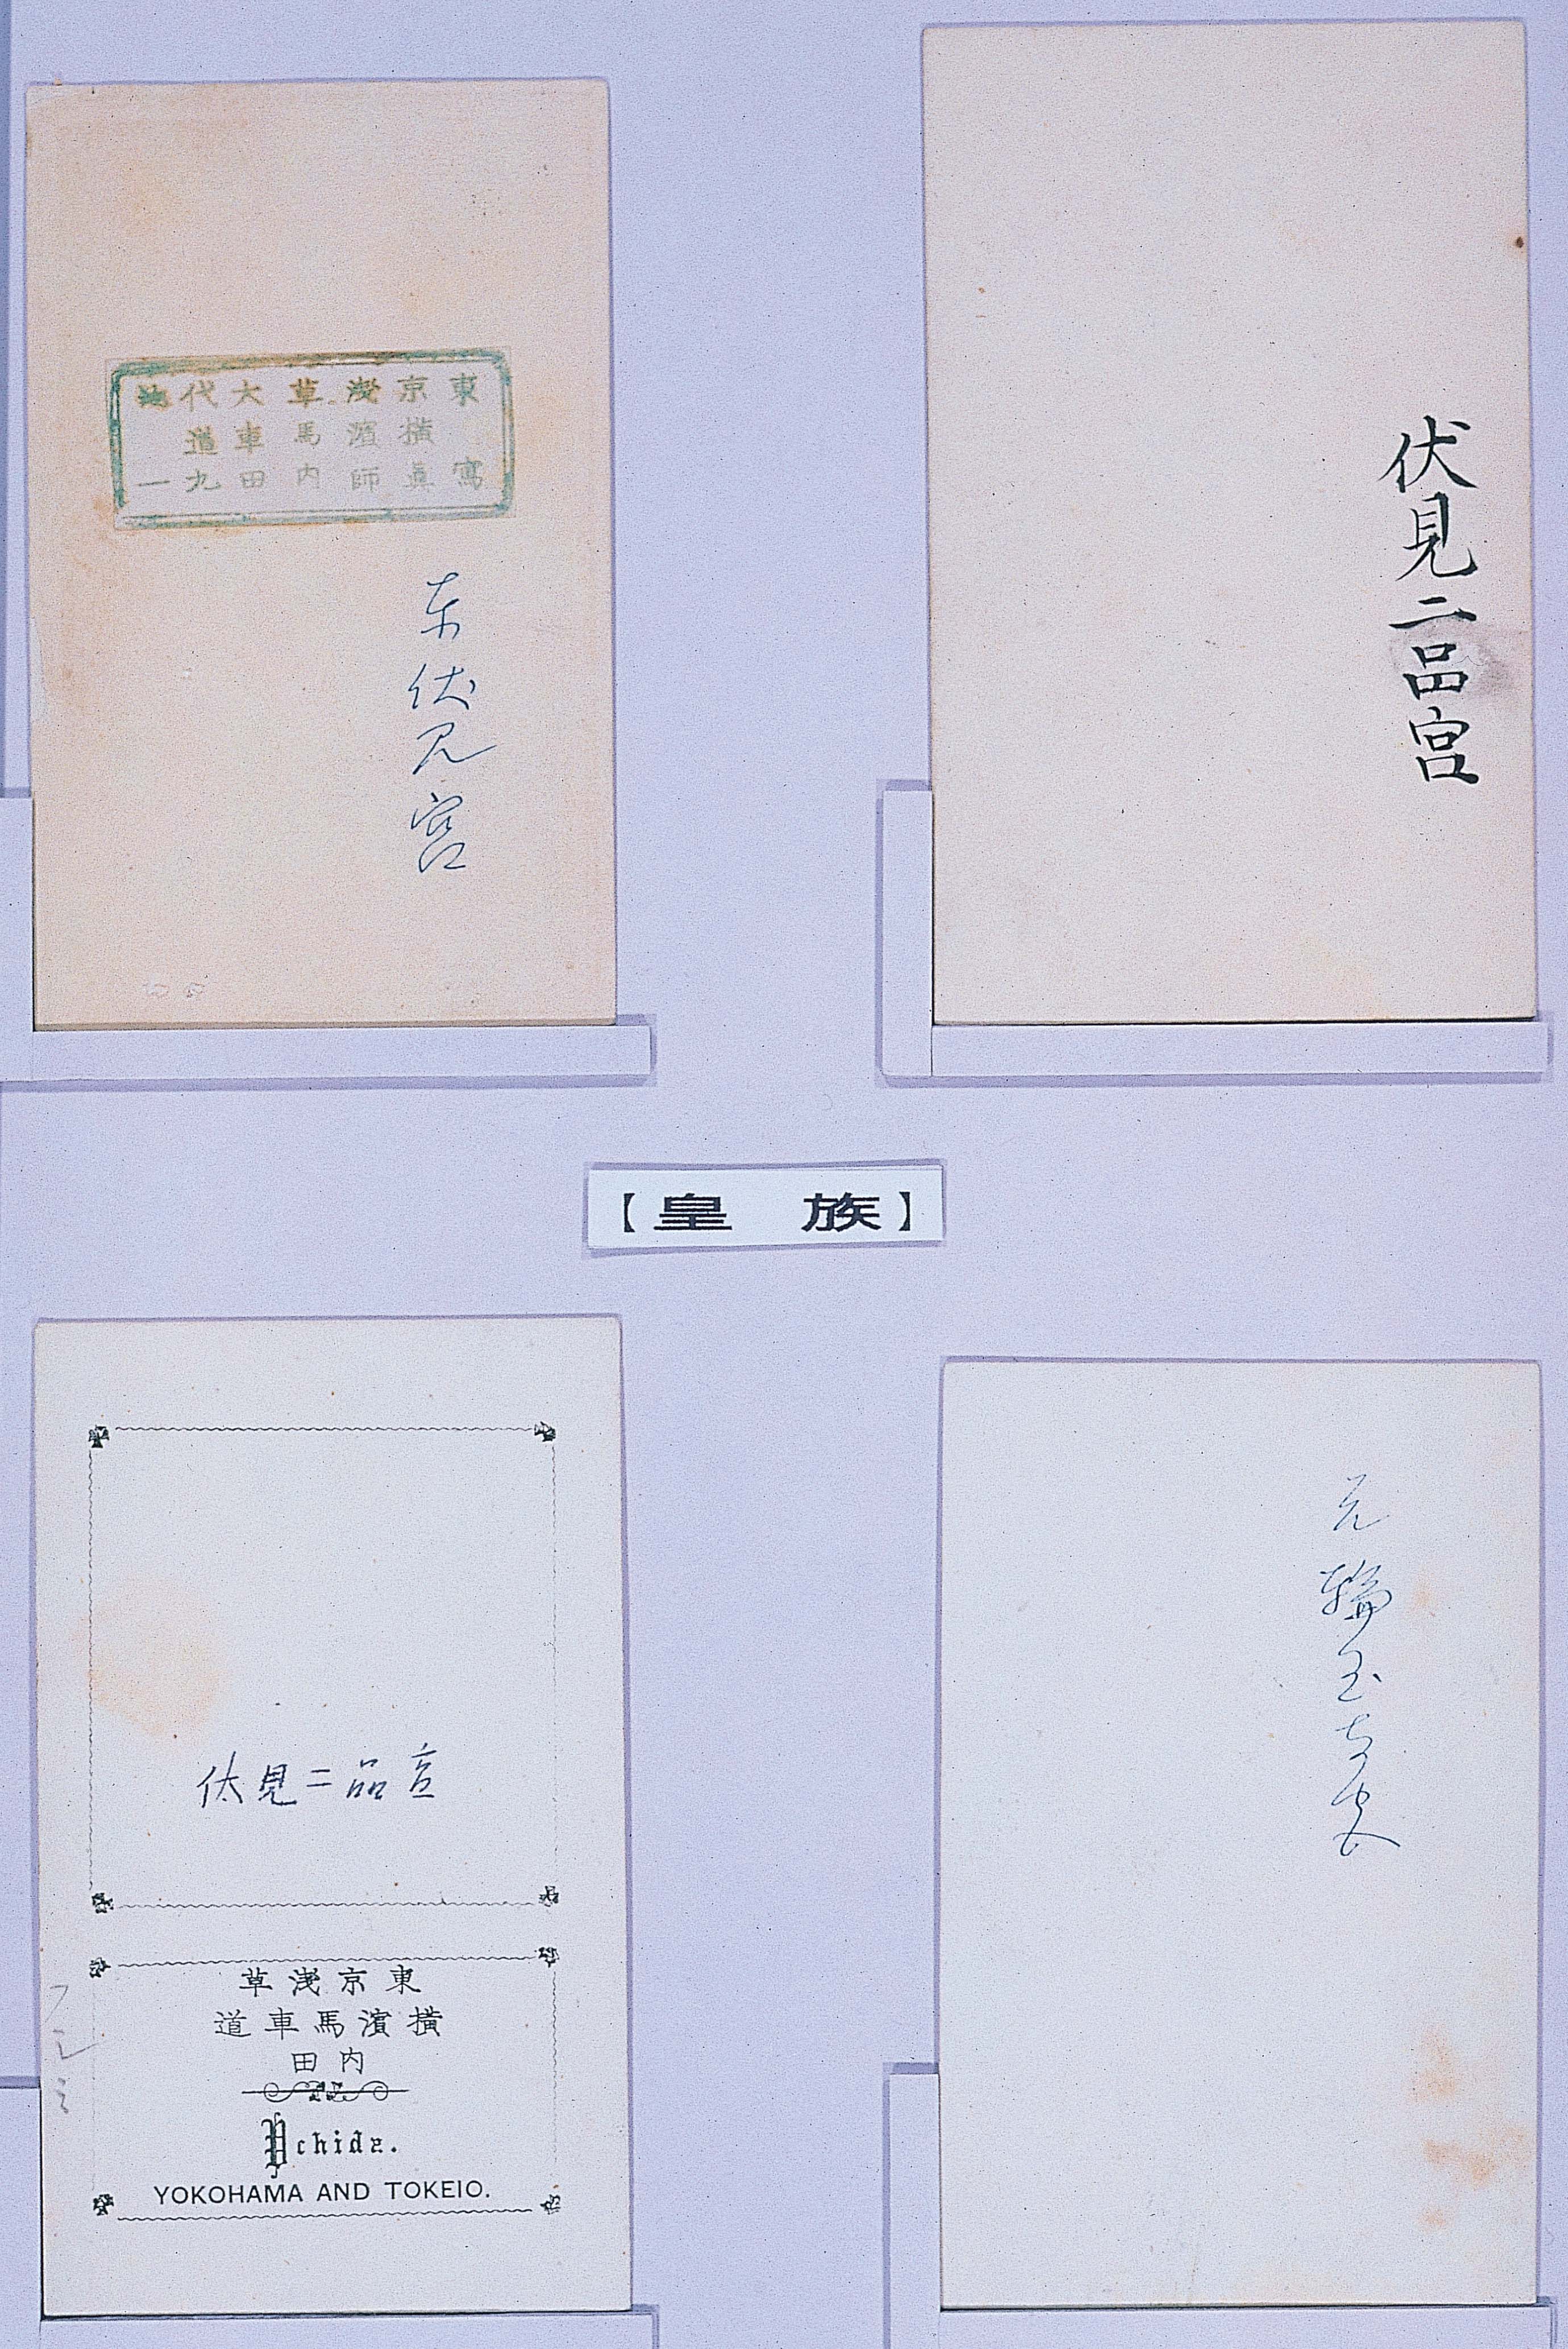 東京淺草大代地
横濱馬車道
寫眞師内田九一
東伏見宮
伏見二品宮
【皇 族】
伏見二品宮
東京淺草
横濱馬車道
内田
Uchida.
YOKOHAMA AND TOKEIO.
元輪王寺宮